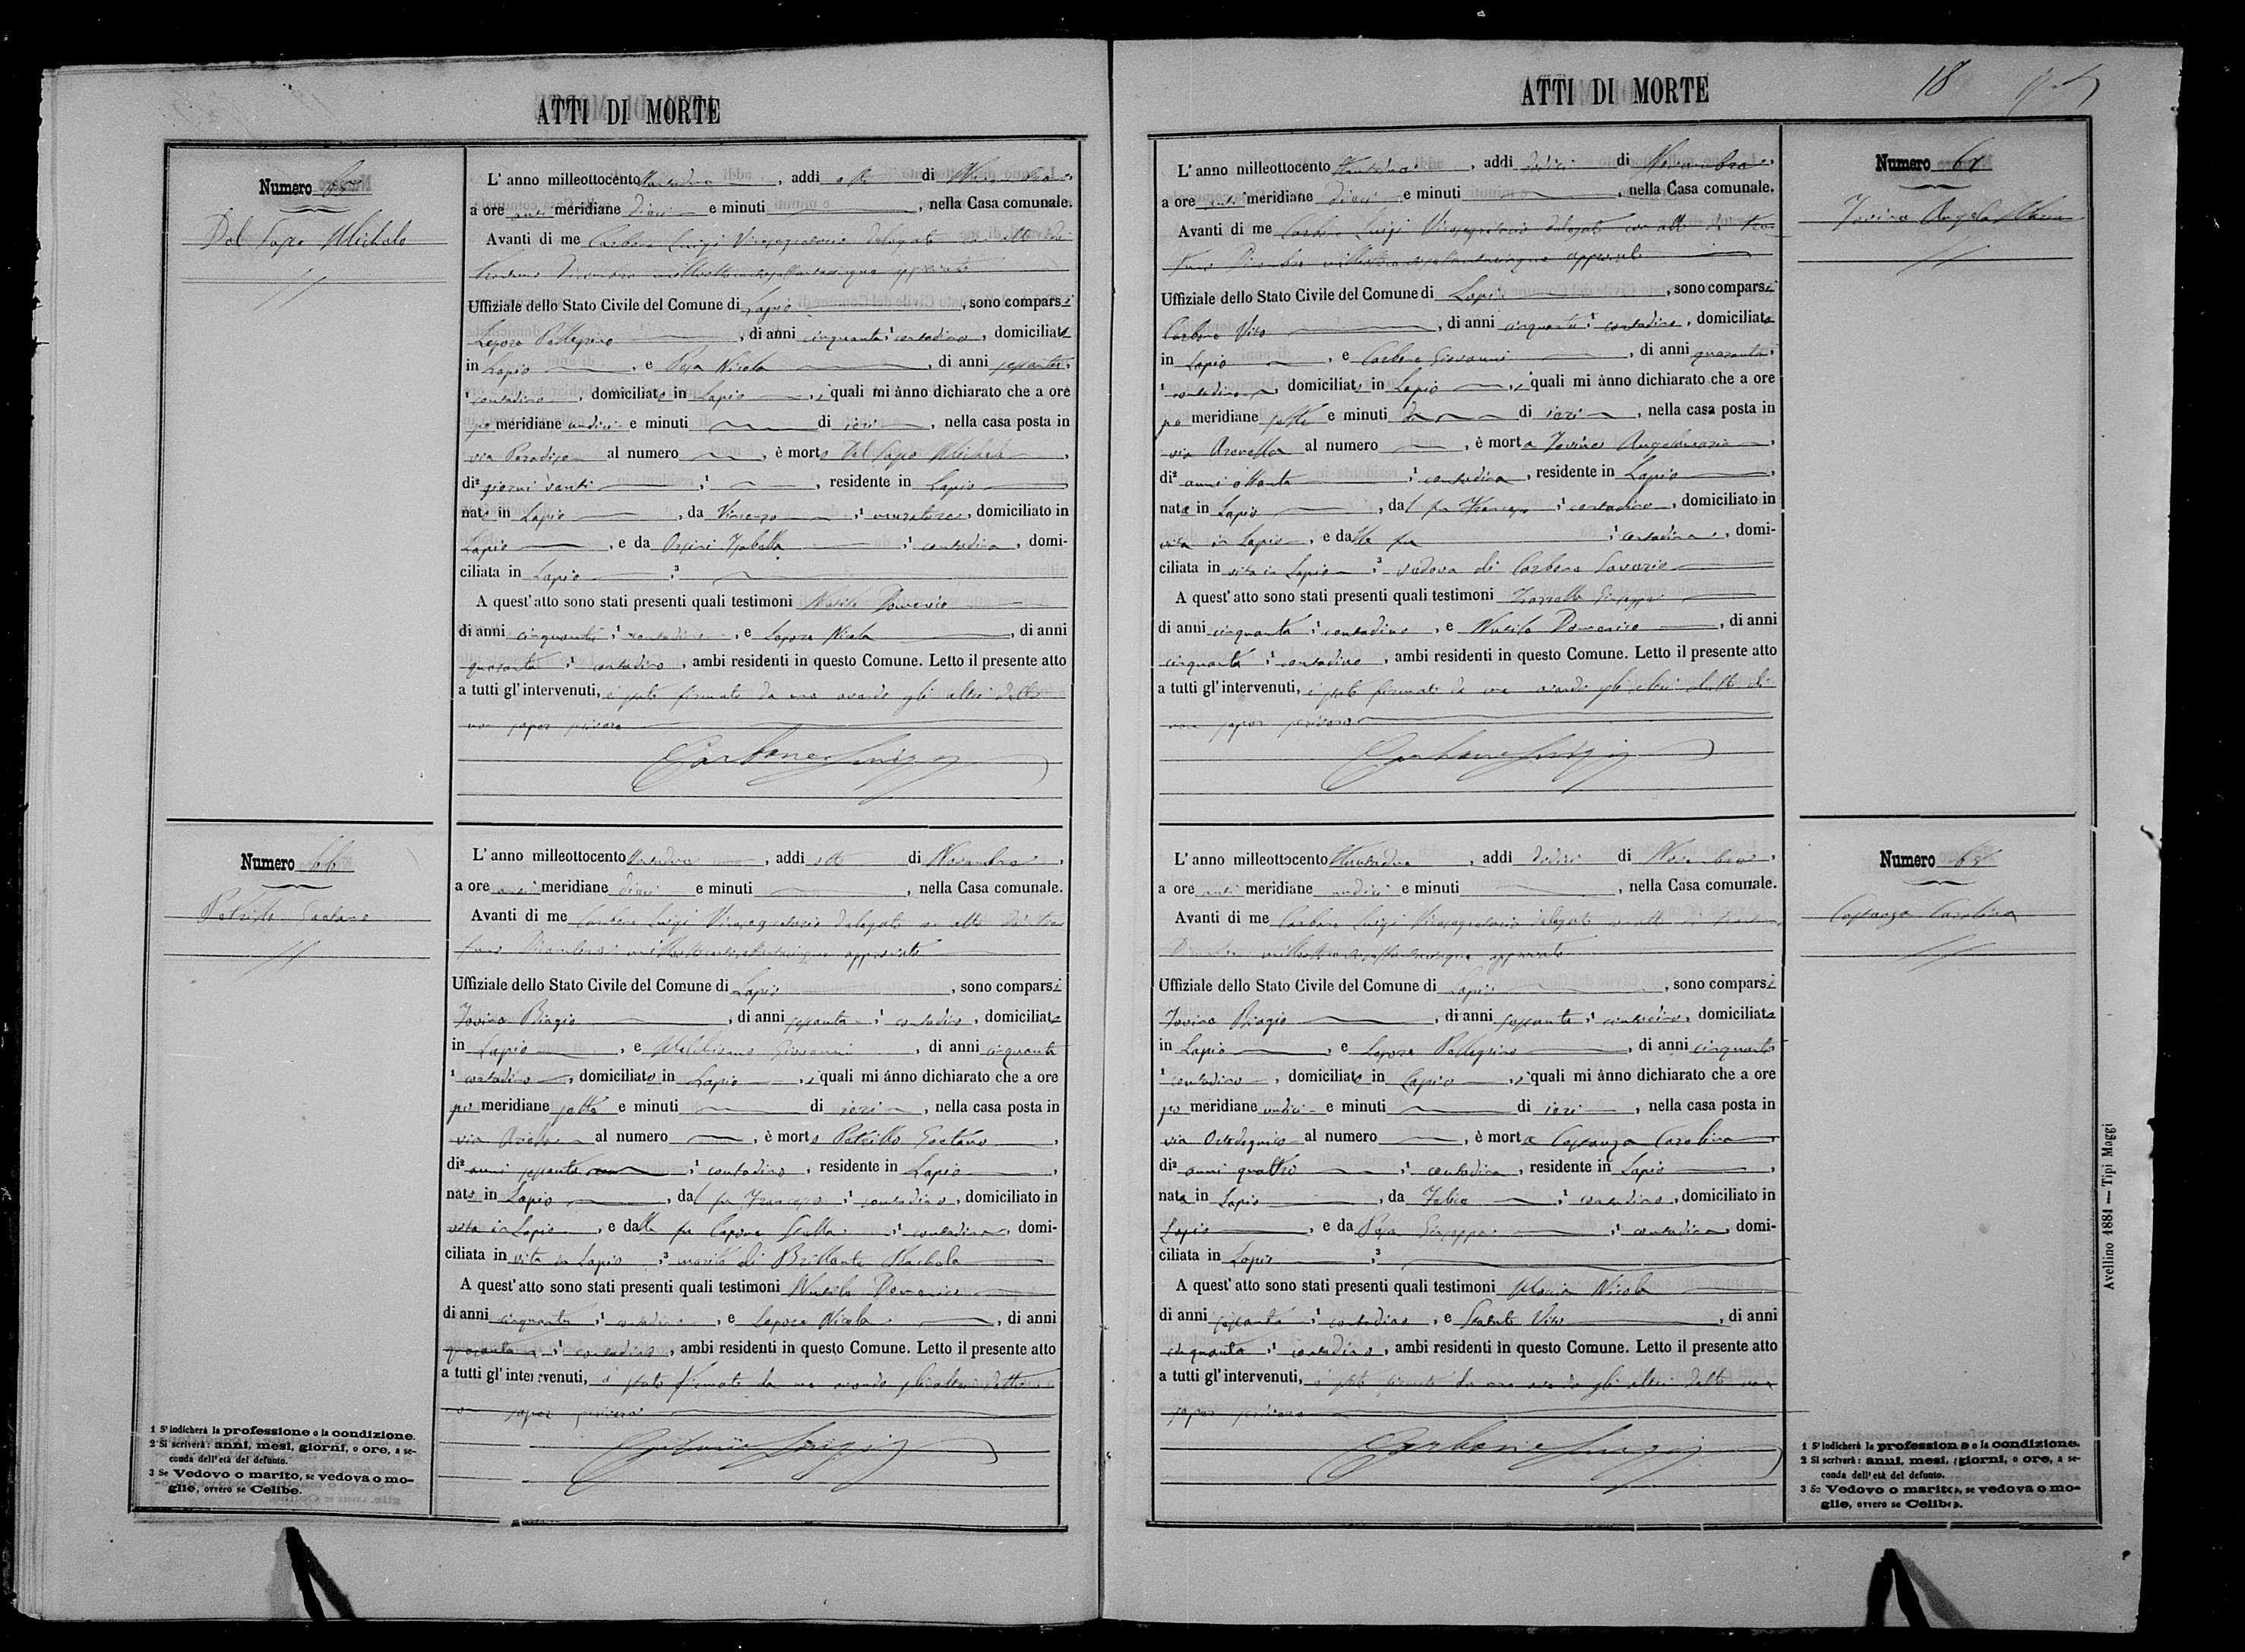 ATTI DI MORTE
Numero 65
Del Papa Michele
L' anno milleottocento ottantadue, addì otto di Novembre,
a ore anti meridiane dieci e minuti, nella Casa comunale.
Avanti di me Carbone Luigi Vicesegretario delegato con atto dei
trentuno Dicembre milleottocentosettantacinque approvato
Uffiziale dello Stato Civile del Comune di Lapio, sono comparsi
Lepore Pellegrino, di anni cinquanta, contadino, domiciliato
in Lapio, e Pepa Nicola, di anni sessanta,
contadino, domiciliato in Lapio, i quali mi ànno dichiarato che a ore
po meridiane undici e minuti di ieri, nella casa posta in
via Paradiso al numero, è morto Del Papa Michele,
di² giorni venti, residente in Lapio
nato in Lapio, da Vincenzo, muratore, domiciliato in
Lapio, e da Orsini Isabella, contadina, domi-
ciliata in Lapio ³
A quest' atto sono stati presenti quali testimoni Nutile Domenico
di anni cinquanta, contadino, e Lepore Nicola, di anni
quaranta, contadino, ambi residenti in questo Comune. Letto il presente atto
a tutti gl' intervenuti, è stato firmato da me avendo gli altri detto
non saper scrivere
Carbone Luigi
Numero 66
Petrillo Gaetano
L' anno milleottocento ottantadue, addì otto di Novembre,
a ore anti meridiane dieci e minuti, nella Casa comunale.
Avanti di me Carbone Luigi Vicesegretario delegato con atto dei tren
tuno Dicembre milleottocentosettantacinque approvato
Uffiziale dello Stato Civile del Comune di Lapio, sono comparsi
Iovino Biagio, di anni sessanta, contadino, domiciliato
in Lapio, e Giovanni, di anni cinquanta
contadino, domiciliato in Lapio, i quali mi ànno dichiarato che a ore
po meridiane sette e minuti di ieri, nella casa posta in
via al numero, è morto Petrillo Gaetano,
di² anni sessanta, contadino, residente in Lapio,
nato in Lapio, dal fu Francesco, contadino, domiciliato in
vita in Lapio, e dalla fu Capone, contadina, domi-
ciliata in vita in Lapio ³ marito di Brillante Rachela
A quest' atto sono stati presenti quali testimoni Nutile Domenico
di anni cinquanta, contadino, e Lepore Nicola, di anni
quaranta, contadino, ambi residenti in questo Comune. Letto il presente atto
a tutti gl' intervenuti, è stato firmato da me avendo gli altri detto
non saper scrivere
Carbone Luigi
1 S' indicherà la professione o la condizione.
2 Si scriverà: anni, mesi, giorni, o ore, a se-
conda dell' età del defunto.
3 Se Vedovo o marito, se vedova o mo-
glie, ovvero se Celibe.
ATTI DI MORTE
18
Numero 67
Iovino Angela Maria
L' anno milleottocento ottantadue, addì dodici di Novembre,
a ore anti meridiane dieci e minuti, nella Casa comunale.
Avanti di me Carbone Luigi Vicesegretario delegato con atto dei tren
tuno Dicembre milleottocentosettantacinque approvato
Uffiziale dello Stato Civile del Comune di Lapio, sono comparsi
Carbone Vito, di anni cinquanta, contadino, domiciliato
in Lapio, e Carbone Giovanni, di anni quaranta,
contadino, domiciliato in Lapio, i quali mi ànno dichiarato che a ore
po meridiane sette e minuti di ieri, nella casa posta in
via al numero, è morta Iovino Angelamaria,
di² anni ottanta, contadina, residente in Lapio,
nata in Lapio, dal fu, contadino, domiciliato in
vita in Lapio, e dalla fu, contadina, domi-
ciliata in vita in Lapio ³ vedova di Carbone Saverio
A quest' atto sono stati presenti quali testimoni Giuseppe
di anni cinquanta, contadino, e Nutile Domenico, di anni
cinquanta, contadino, ambi residenti in questo Comune. Letto il presente atto
a tutti gl' intervenuti, è stato firmato da me avendo gli altri detto di
non saper scrivere
Carbone Luigi
Numero 68
Costanza Carolina
L' anno milleottocento ottantadue, addì dodici di Novembre,
a ore anti meridiane undici e minuti, nella Casa comunale.
Avanti di me Carbone Luigi Vicesegretario delegato con atto dei trentuno
Dicembre milleottocentosettantacinque approvato
Uffiziale dello Stato Civile del Comune di Lapio, sono comparsi
Iovino Biagio, di anni sessanta, contadino, domiciliato
in Lapio, e Lepore Pellegrino, di anni cinquanta
contadino, domiciliato in Lapio, i quali mi ànno dichiarato che a ore
po meridiane undici e minuti di ieri, nella casa posta in
via al numero, è morta Costanza Carolina,
di² anni quattro, contadina, residente in Lapio,
nata in Lapio, da Felice, contadino, domiciliato in
Lapio, e da Pepa Giuseppa, contadina, domi-
ciliata in Lapio ³
A quest' atto sono stati presenti quali testimoni Nicola
di anni sessanta, contadino, e Vito, di anni
cinquanta, contadino, ambi residenti in questo Comune. Letto il presente atto
a tutti gl' intervenuti, è stato firmato da me avendo gli altri detto non
saper scrivere
Carbone Luigi
1 S' indicherà la professione o la condizione.
2 Si scriverà: anni, mesi, giorni, o ore, a se-
conda dell' età del defunto.
3 Se Vedovo o marito, se vedova o mo-
glie, ovvero se Celibe.
Avellino 1881 — Tipi Maggi